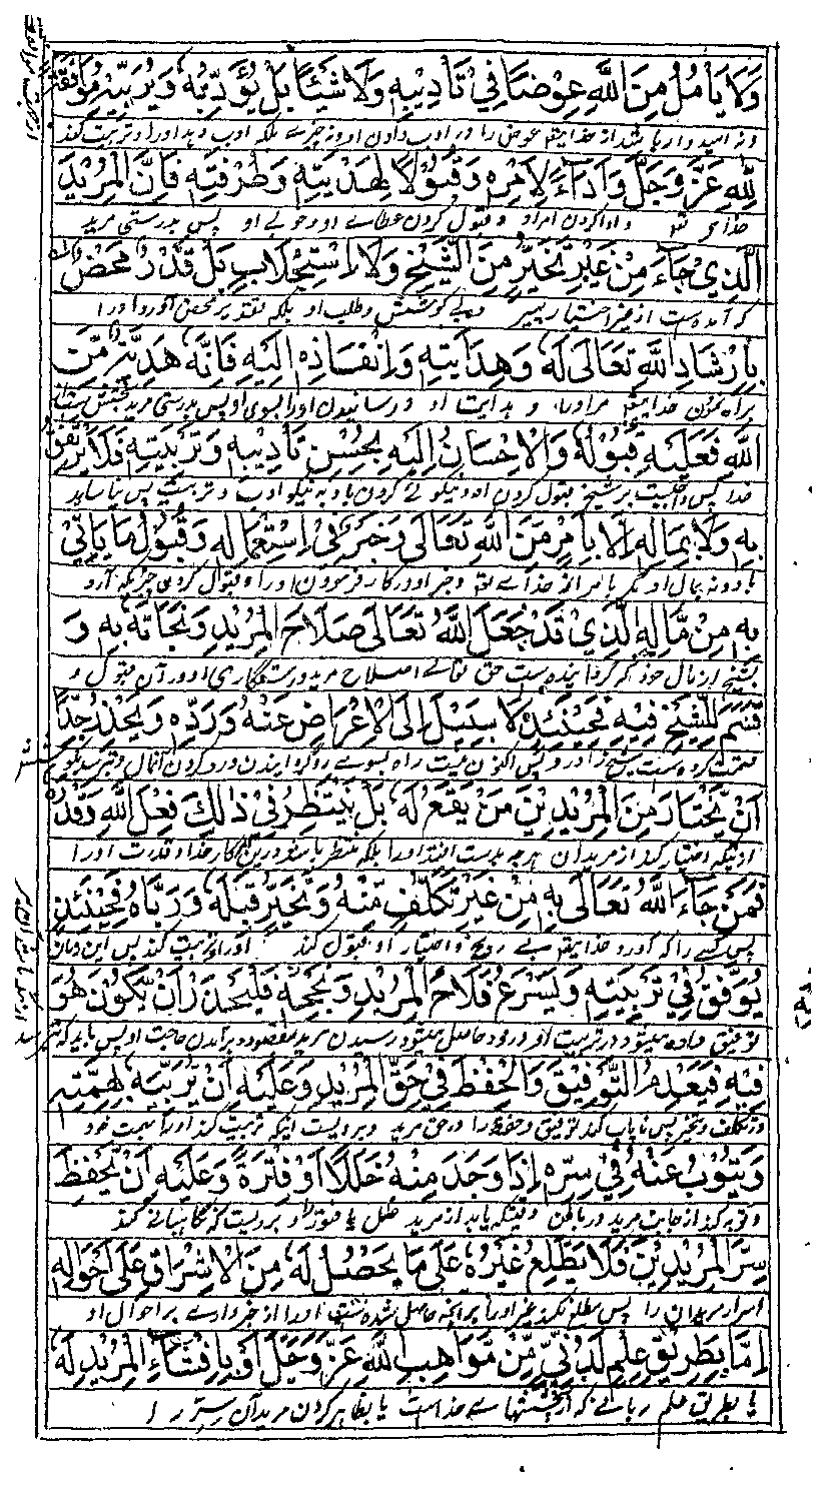 وَلَا يَأْمُلُ مِنَ اللَّهِ عِوَضًا فِي تَأْدِيبِهِ وَلَا شَيْئًا بَلْ يُؤَدِّبُهُ وَيُرَبِّيْهِ مُوَافَقَةً
ونه امیدوار باشد از خدایتعا عوض را در ادب دادن او ونه چیزے بلکه ادب دهد اورا وتربیت کند
لِلَّهِ عَزَّ وَجَلَّ وَأَدَاءً لِأَمْرِهِ وَقَبُولًا لِهَدِيَّتِهِ وَطُرْفَتِهِ فَإِنَّ الْمُرِيْدَ
وادا کردن امر او وقبول کردن عطاے او وخوبے او پس بدرستی مرید
الَّذِي جَاءَ مِنْ غَيْرِ تَخَيُّرٍ مِنَ الشَّيْخِ وَلَا اسْتِجْلَابٍ بَلْ قَدَرٌ مَحْضٌ
که آمده ست از غیر اختیار پیر وبے کوشش وطلب او بلکه تقدیر محض آورد اورا
بِإِرْشَادِ اللَّهِ تَعَالَى لَهُ وَهِدَايَتِهِ وَإِنْفَاذِهِ إِلَيْهِ فَإِنَّهُ هَدِيَّةٌ مِّنَ
براه نمودن خدایتعا مر اورا و هدایت او ورسانیدن اورا بسوی او پس بدرستی مرید بخشش ست از
اللَّهِ فَعَلَيْهِ قَبُولُهُ وَالْإِحْسَانُ إِلَيْهِ بِحُسْنِ تَأْدِيبِهِ وَتَرْبِيَتِهِ فَلَا يَرْتَفِقُ
خدا پس واجبست بر شیخ قبول کردن او ونیکوئے کردن باو به نیکو ادب وتربیت پس نیاساید
بِهِ وَلَا بِمَالِهِ إِلَّا بِأَمْرٍ مِّنَ اللَّهِ تَعَالَى وَخَبَرٍ فِي اسْتِعْمَالِهِ وَقَبُولِ مَا يَأْتِي
باو ونه بمال او مگر بامر از خداے تعا وخبر او در کار فرمودن اورا وقبول کردن چیزیکه آرد
بِهِ مِنْ مَّالِهِ الَّذِي قَدْ جَعَلَ اللَّهُ تَعَالَى صَلَاحَ الْمُرِيْدِ وَنَجَاتَهُ بِهِ وَ
شیخ از مال خود که گردانیده ست حق تعالے اصلاح مرید ورستگاری او در آن قبول و
قَسَمَ لِلشَّيْخِ فِيْهِ فَحِيْنَئِذٍ لَا سَبِيْلَ إِلَى الْإِعْرَاضِ عَنْهُ وَرَدِّهِ وَيَحْذَرُ جِدًّا
قسمت کرده ست شیخ را در و پس اکنون نیست راه بسوے روگردانیدن ورد کردن آن مال
أَنْ يَّخْتَارَ مِنَ الْمُرِيْدِيْنَ مَنْ يَقَعُ لَهُ بَلْ يَنْتَظِرُ فِي ذَلِكَ فِعْلَ اللَّهِ وَقَدَرَهُ
ازینکه اختیار کند از مریدان هر چه بدست افتد اورا بلکه منتظر باشد درین کار خدا وقدرت اورا
فَمَنْ جَاءَ اللَّهُ تَعَالَى بِهِ مِنْ غَيْرِ تَكَلُّفٍ مِّنْهُ وَتَخَيُّرٍ قَبِلَهُ وَرَبَّاهُ فَحِيْنَئِذٍ
پس کسے را که آورد خدایتعا بے رنج و اختیار او قبول کند اورا وتربیت کند پس این زمان
يُوَفَّقُ فِي تَرْبِيَتِهِ وَيَسْرُعُ فَلَاحُ الْمُرِيْدِ وَنُجْحُهُ فَلْيَحْذَرْ أَنْ يَّكُوْنَ هُوَ
توفیق داده میشود در تربیت او وزود حاصل میشود رسیدن مرید بمقصود وبرآمدن حاجت او پس باید که
فِيْهِ فَيُعْدَمُ التَّوْفِيْقَ وَالْحِفْظَ فِي حَقِّ الْمُرِيْدِ وَعَلَيْهِ أَنْ يُّرَبِّيَهُ بِهِمَّتِهِ
وتکلف وتخیر پس نایاب کند توفیق وحفظ را در حق مرید وبرویست اینکه تربیت کند اورا بهمت خود
وَيَتُوْبَ عَنْهُ فِي سِرِّهِ إِذَا وَجَدَ مِنْهُ خَلَلًا أَوْ فَتْرَةً وَعَلَيْهِ أَنْ يَّحْفَظَ
وتوبه کند از جانب مرید در باطن وقتیکه یابد از مرید خلل یا فتور او برویست که نگاہبانے کند
سِرَّ الْمُرِيْدِيْنَ فَلَا يُطْلِعَ غَيْرَهُ عَلَى مَا يَحْصُلُ لَهُ مِنَ الْإِشْرَاقِ عَلَى أَحْوَالِهِ
اسرار مریدان را پس مطلع نکند غیر اورا بر آنچه حاصل شده است اورا از خبردارے بر احوال او
إِمَّا بِطَرِيْقِ عِلْمٍ لَّدُنِّيٍّ مِّنْ مَّوَاهِبِ اللَّهِ عَزَّ وَجَلَّ أَوْ بِإِفْشَاءِ الْمُرِيْدِ لَهُ
یا بطریق علم ربانے که از بخششهاے خداست یا بظاهر کردن مرید آن سر را